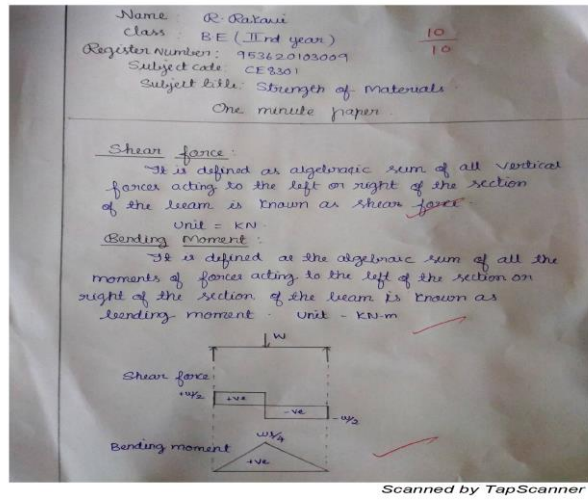 Name : R. Rakavi
Class : BE (IInd year)
10
10
Register Number : 953620103009
Subject code : CE8301
Subject title : Strength of Materials
One minute paper.
Shear force :
It is defined as algebraic sum of all vertical
forces acting to the left or right of the section
of the beam is known as shear force
Unit = KN.
Bending Moment :
It is defined as the algebraic sum of all the
moments of forces acting to the left of the section or
right of the section of the beam is known as
bending moment. Unit - KN-m
W
Shear force
+w/2
+ve
-ve
-w/2
Bending moment
wl/4
+ve
Scanned by TapScanner